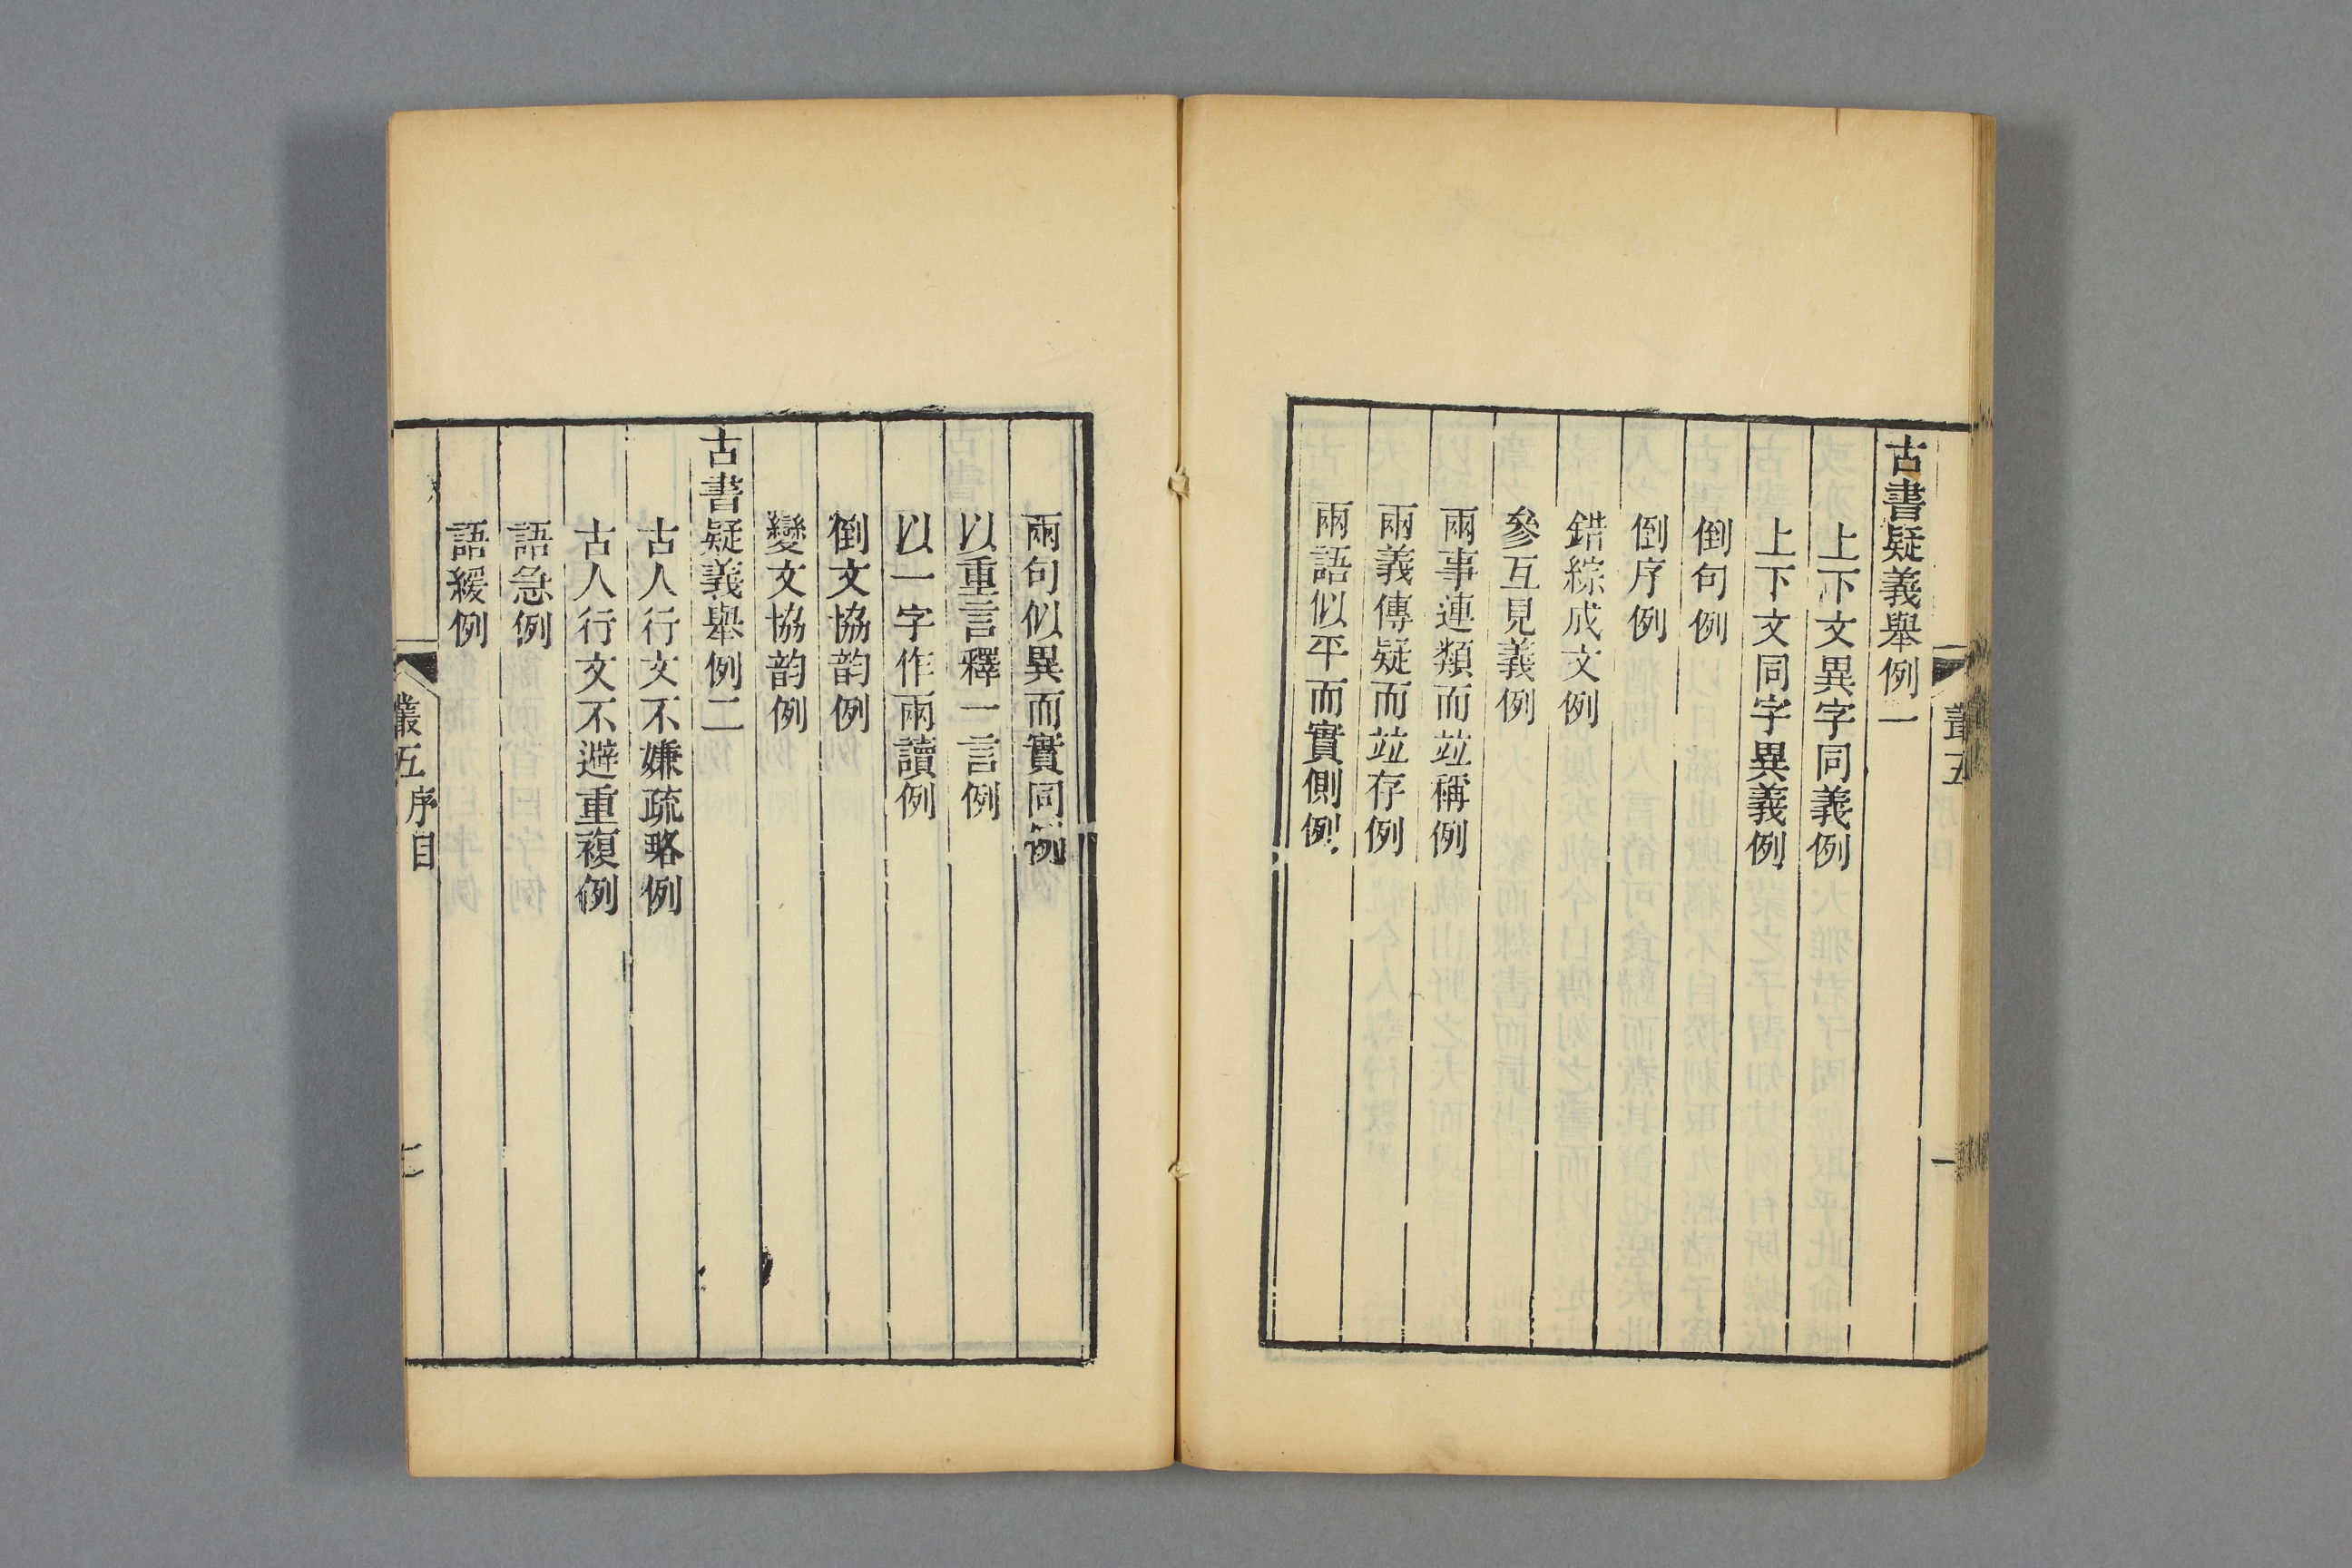 古書疑義舉例一
上下文異字同義例
上下文同字異義例
倒句例
倒序例
錯綜成文例
參互見義例
兩事連類而竝稱例
兩義傳疑而竝存例
兩語似平而實側例
兩句似異而實同例
以重言釋一言例
以一字作兩讀例
倒文協韵例
變文協韵例
古書疑義舉例二
古人行文不嫌疏略例
古人行文不避重複例
語急例
語緩例
叢五
序目